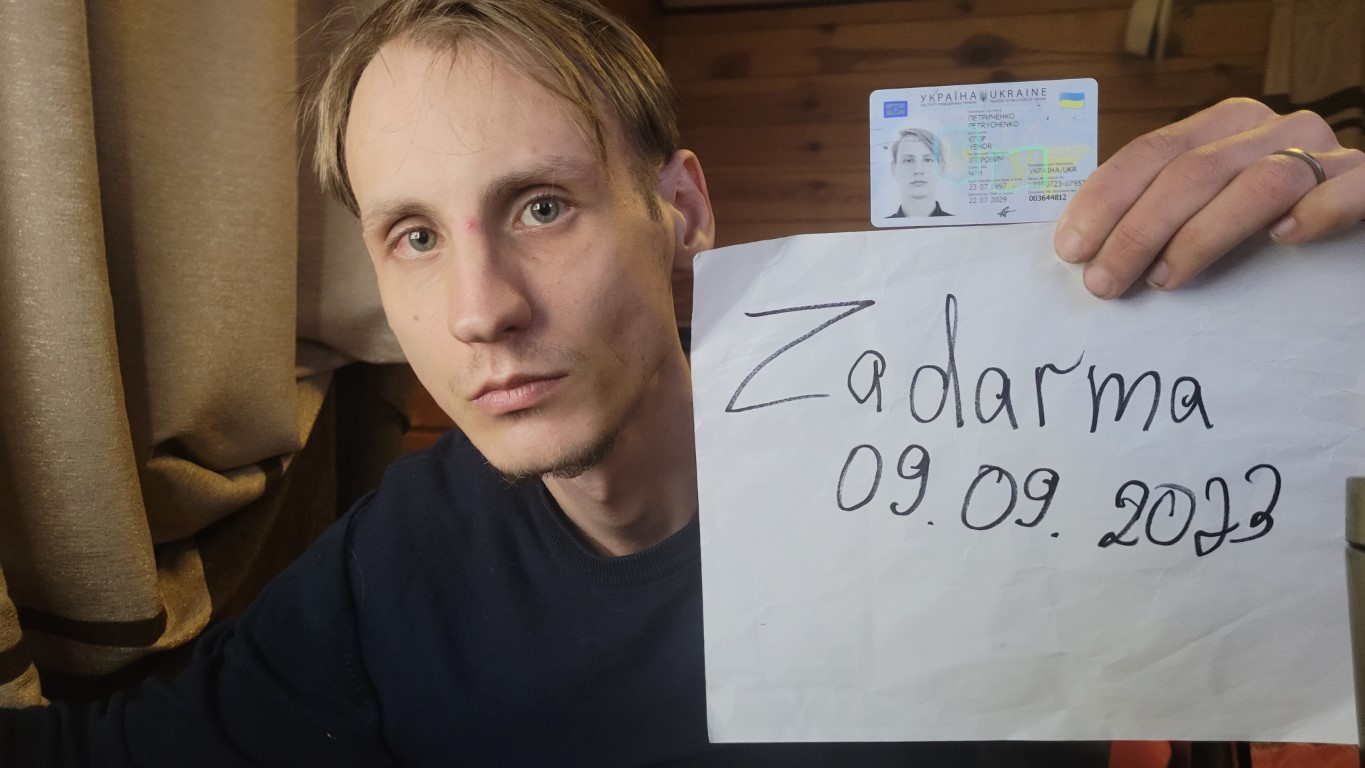 УКРАЇНА UKRAINE
ПЕТРИЧЕНКО
PETRYCHENKO
ЄГОР
YEHOR
ІГОРОВИЧ
УКРАЇНА/UKR
23 07 1997
22 07 2029
003644812
Zadarma
09.09.2023